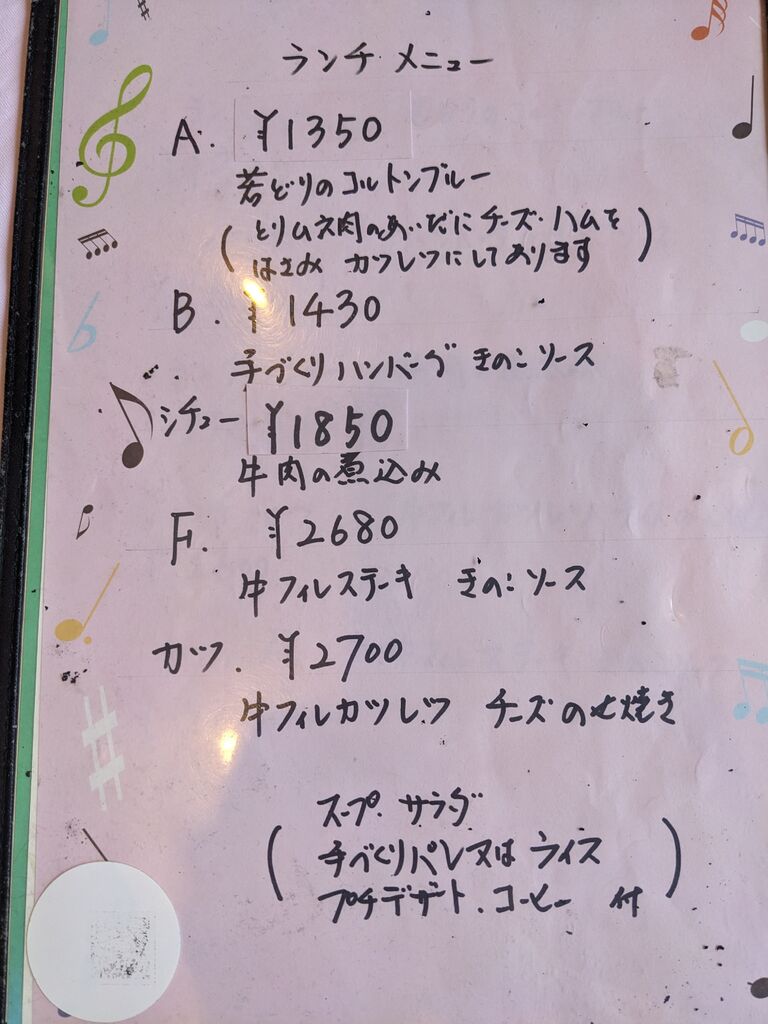 ランチ メニュー
A. ¥1350
若どりのコルトンブルー
(とりムネ肉のあいだにチーズ・ハムを
はさみ カツレツにしております)
B. ¥1430
手づくりハンバーグ きのこソース
シチュー ¥1850
牛肉の煮込み
F. ¥2680
牛フィレステーキ きのこソース
カツ. ¥2700
牛フィレカツレツ チーズのせ焼き
(スープ. サラダ
手づくりパン又はライス
プチデザート. コーヒー 付)